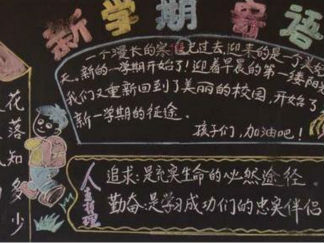 新学期寄语
一个漫长的寒假已过去,迎来的是一个美
天。新的一学期开始了!迎着早晨的第一缕阳
我们又重新回到了美丽的校园,开始了
新一学期的征途。
孩子们,加油吧!
花落知多少
人生哲理
追求:是充实生命的必然途径
勤奋:是学习成功们的忠实伴侣